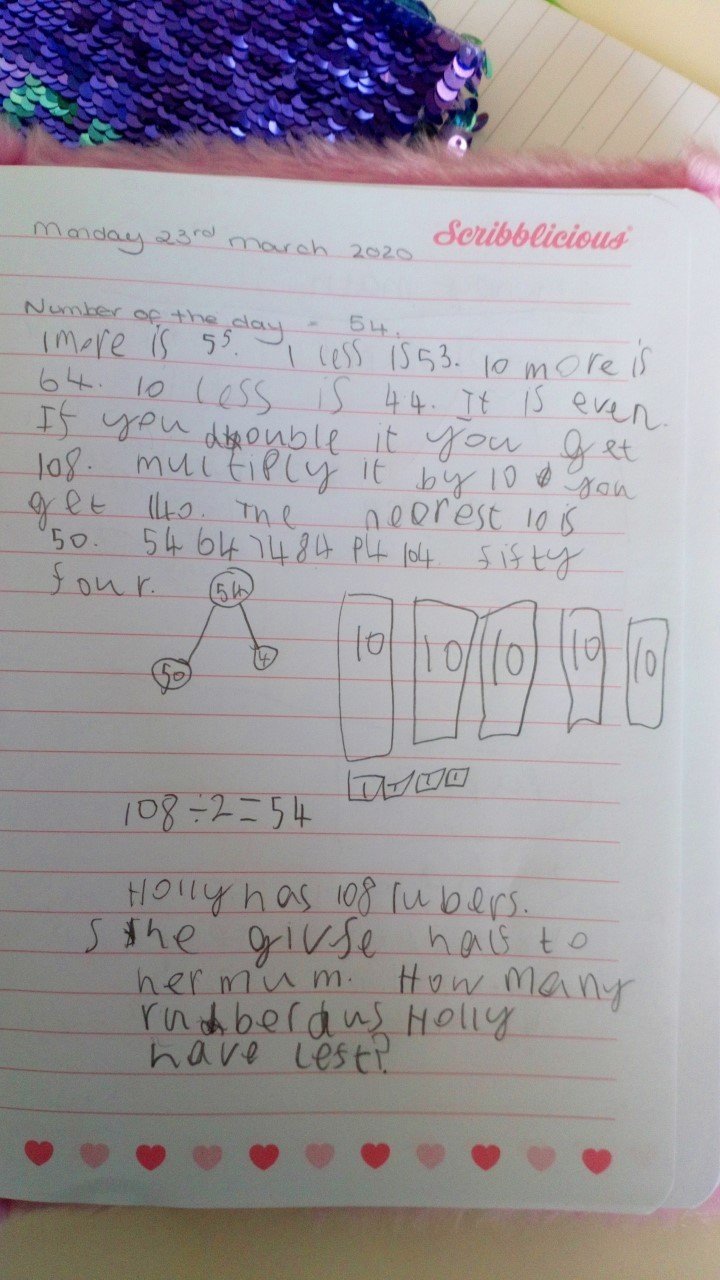 Scribblicious
Monday 23rd march 2020
Number of the day = 54.
1 more is 55. 1 less is 53. 10 more is
64. 10 less is 44. It is even.
If you double it you get
108. multiply it by 10 you
get 1140. The nearest 10 is
50. 54 64 74 84 94 104 fifty
four.
54
50 4
10 10 10 10 10
1 1 1 1
108÷2=54
Holly has 108 rubers.
She givfe half to
her mum. How many
rubber dus Holly
have left?